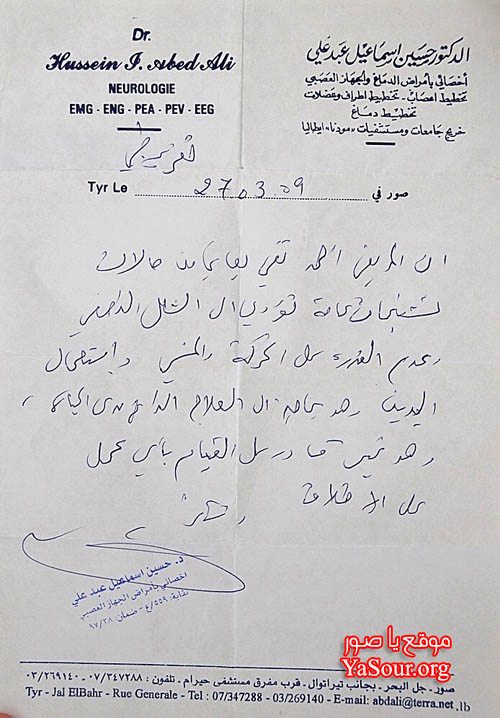 Dr.
Hussein I. Abed Ali
NEUROLOGIE
EMG - ENG - PEA - PEV - EEG
الدكتور حسين اسماعيل عبد علي
أخصائي بأمراض الدماغ والجهاز العصبي
تخطيط اعصاب - تخطيط اطراف وعضلات
تخطيط دماغ
خريج جامعات ومستشفيات «مودنا» ايطاليا
تقرير طبي
Tyr Le 27.03.09 صور في
ان المريض احمد تقي يعاني من حالات
تشنجات عامة تؤدي ال الشلل
وعدم القدرة على الحركة والمشي واستعمال
اليدين وهو بحاجة ال العلاج الدائم مدى الحياة،
وهو غير قادر على القيام بأي عمل
على الاطلاق
د. حسين اسماعيل عبد علي
اخصائي بأمراض الجهاز العصبي
نقابة: ٥٥٩/ع - ضمان: ٩٧/٣٨
موقع يا صور
YaSour.org
صور - جل البحر - بجانب تيراتوال - قرب مفرق مستشفى حيرام - تلفون: ٠٧/٣٤٧٢٨٨ - ٠٣/٢٦٩١٤٠
Tyr - Jal ElBahr - Rue Generale - Tel : 07/347288 - 03/269140 - E-mail: abdali@terra.net.lb